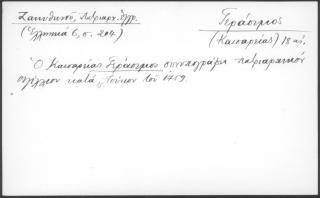 Ζακυθηνοῦ, Πατριαρχ. ἔγγρ.
(Ἑλληνικά 6, σ. 204)
Γεράσιμος
(Καισαρείας) 18 αἰ.
Ὁ Καισαρείας Γεράσιμος συνυπογράφει πατριαρχικόν
σιγίλλιον κατά Ἰούνιον τοῦ 1759.